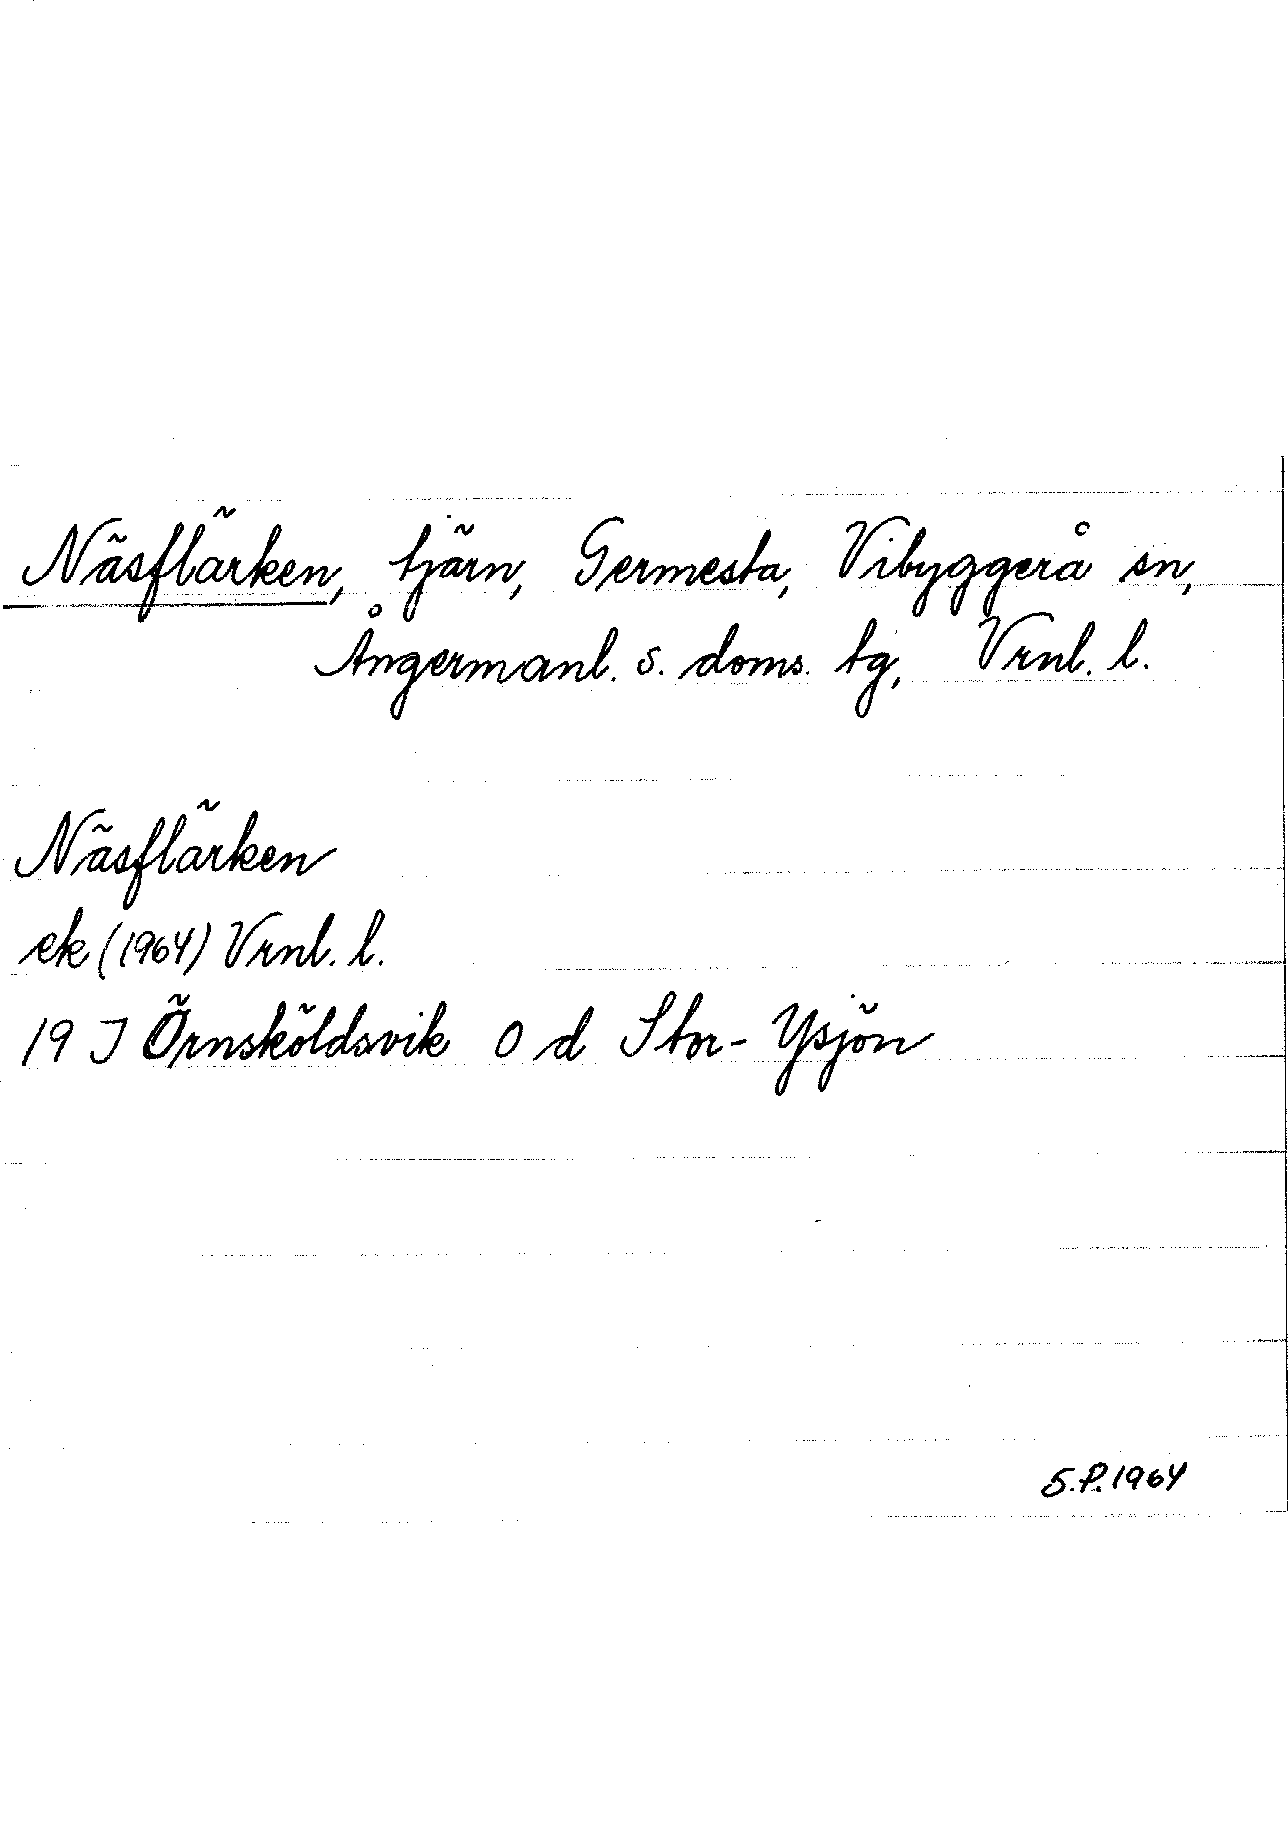 Näsflärken, tjärn, Germesta, Vibyggerå sn,
Ångermanl. s. doms. tg, Vrnl. l.
Näsflärken
ek (1964) Vrnl. l.
19 J Örnsköldsvik o d Stor-Ysjön
S.P. 1964